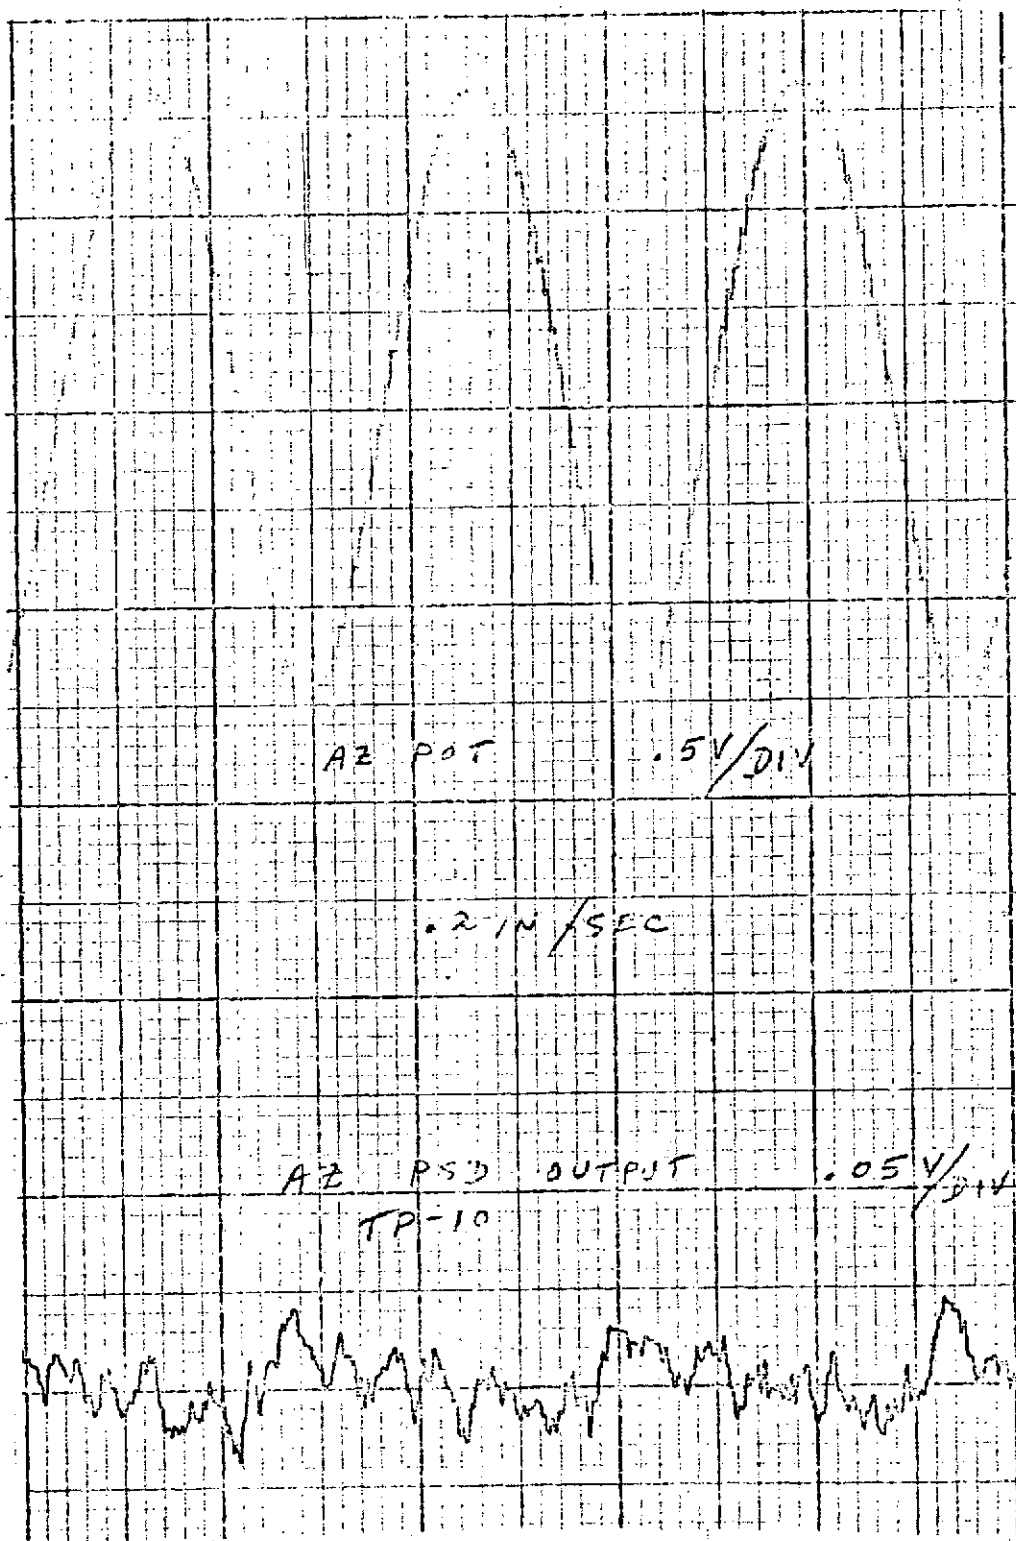 AZ POT .5 V/DIV
.2 IN/SEC
AZ PSD OUTPUT .05 V/DIV
TP-10